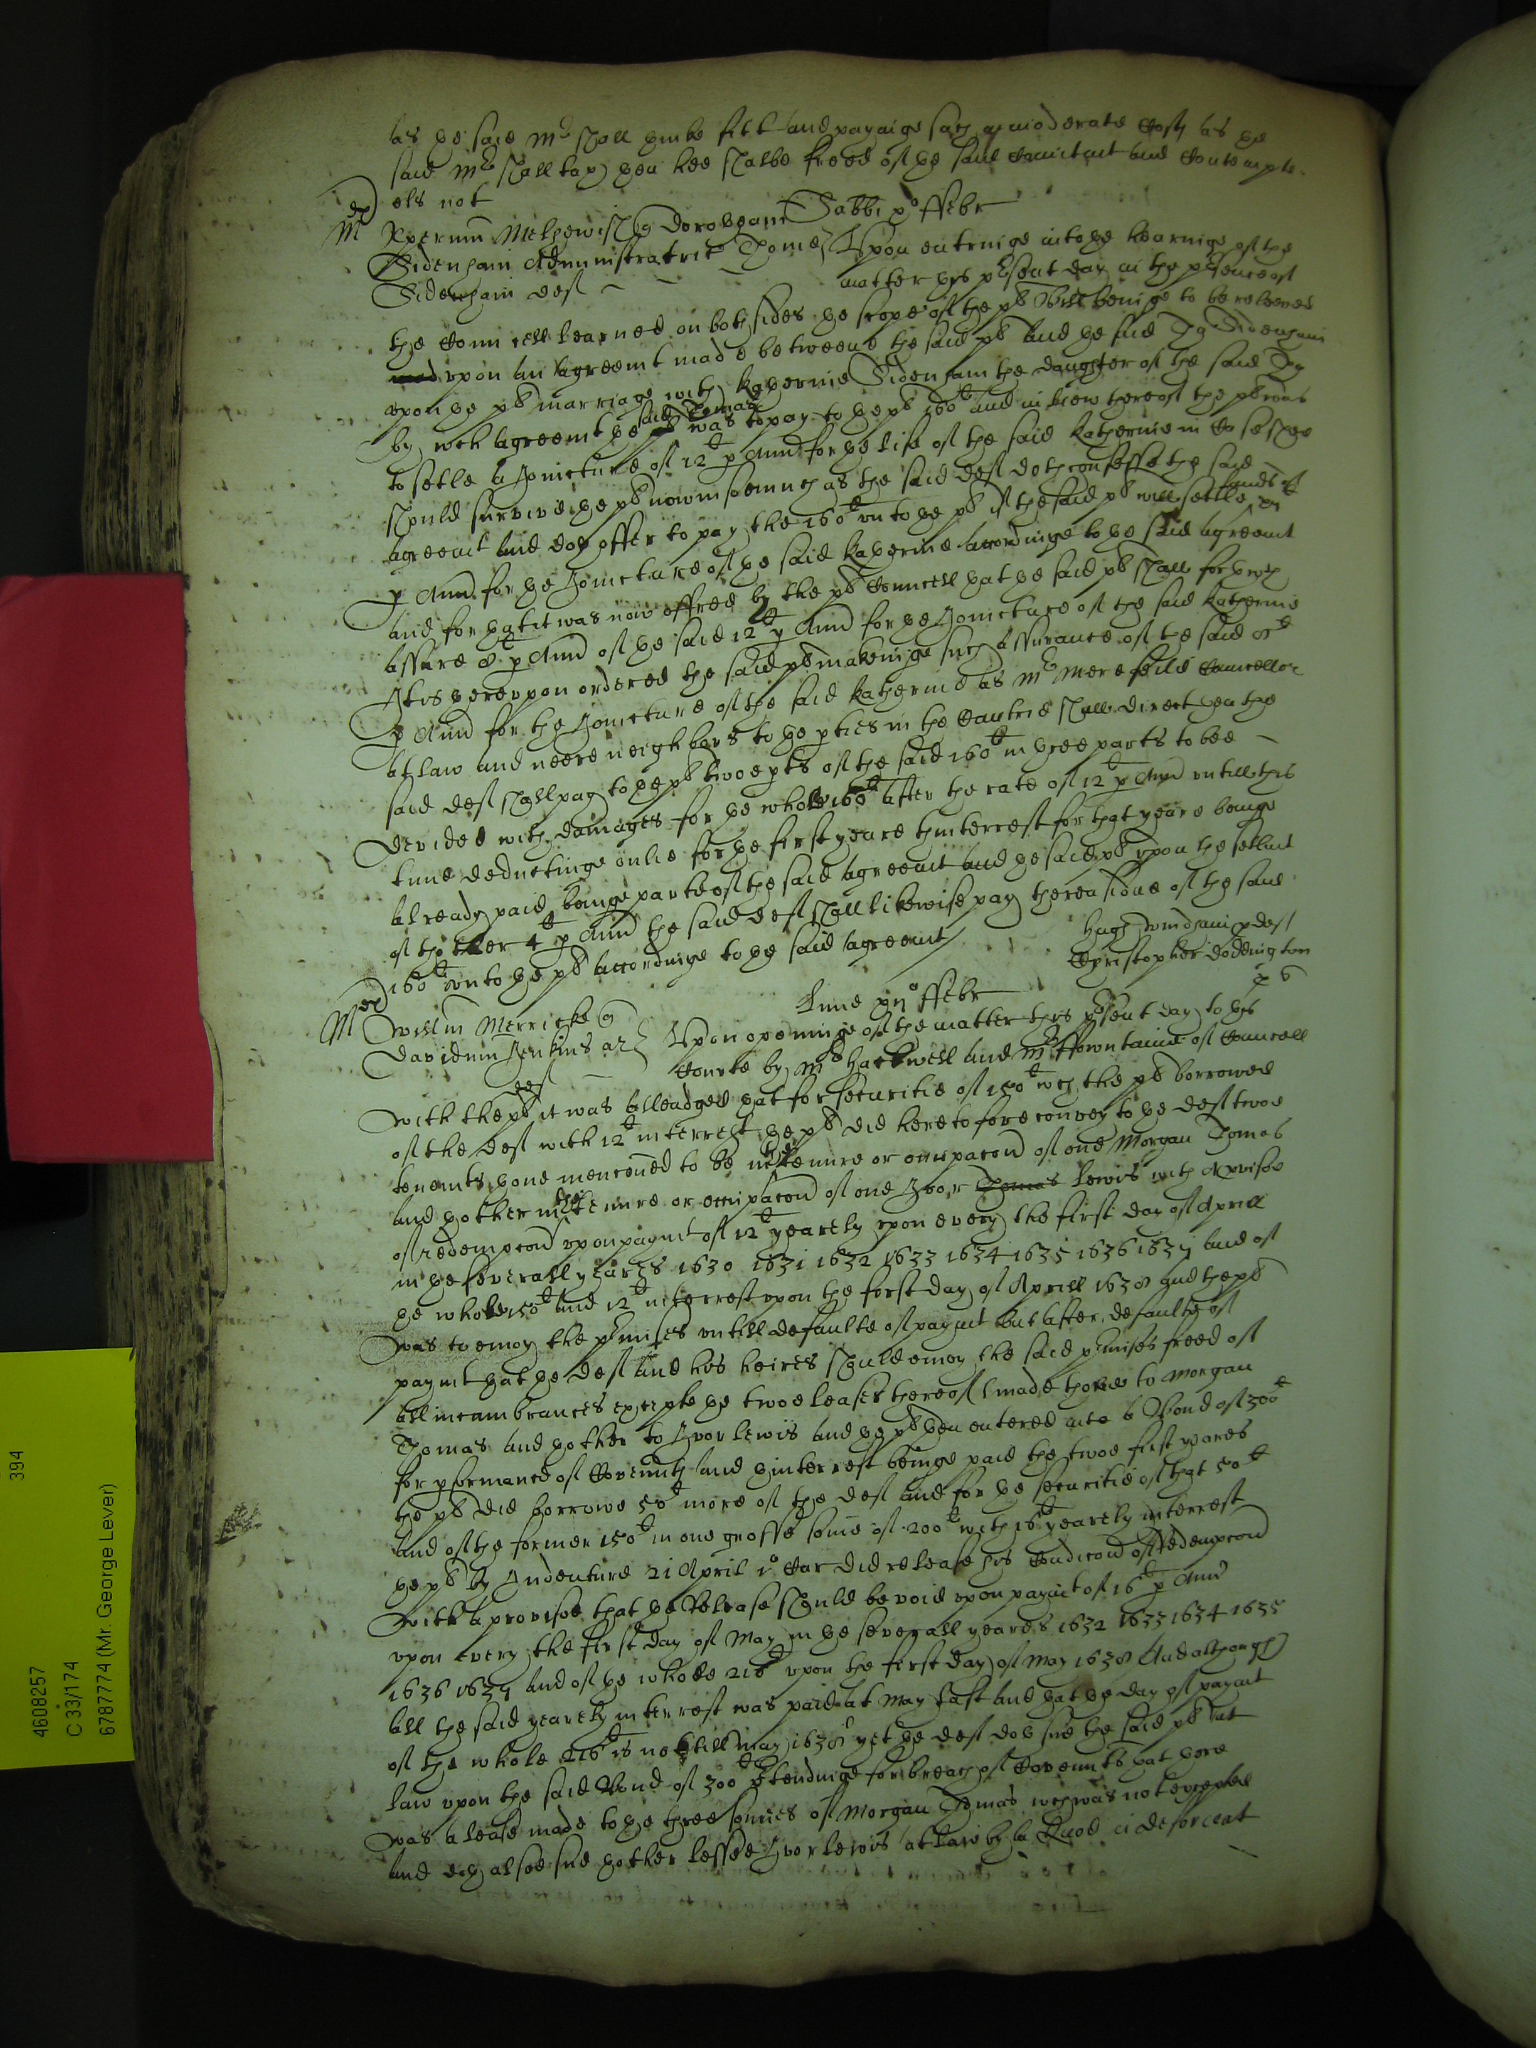 as he said Mr shall thinke fitt and payinge such moderate Costs as the
said Mr shall tax then hee shalbe freed of the said Comitmt and Contempte
els not
Sabbti xo ffebr
Xpeřum Methewish qr Dorotheam
Sidenham Administratric Thome
Sidenham deft
Upon entringe into the hearinge of the
matter this psent day in the psence of
the Councell learned on both sides the scope of the plts Bill beinge to be releeved
upon an agreemt made betweene the said plt and the said Tho Sidenham
upon the plts marriage with Katherine Sidenham the daughter of the said Tho
by wch agreemt the said Thomas was to pay to the plt 160li and in liew thereof the plt was
to setle a Joincture of 12li p Ann for the life of the said Katherine in Case shee
should survive the plt now in soemuch as the said deft doth confesse the said
agreemt and doth offer to pay the 160li unto the plt if the said plt will setle lands of 12li
p Ann for the Joincture of the said Katherine accordinge to the said agreemt
and for that it was now offred by the plts Councell that the said plt shall forthwth
assure 8li p Ann of the said 12li p Ann for the Joincture of the said Katherine
It is thereupon ordered the said plt makeinge such assurance of the said 8li
p Ann for the Joincture of the said Katherine as Mr Merefeild Councellor
at law and neere neighbors to the pties in the Cuntrie shall direct then the
said deft shall pay to the plt twoe pts of the said 160li in three parts to bee
devided with damages for the whole 160li after the rate of 12li p Ann untill this
time deductinge onlie for the first yeare thinterrest for that yeare beinge
already paid beinge parte of the said agreemt and the said plt upon the setlmt
of thother 4li p Ann the said deft shall likewise pay the residue of the said
160li unto the plt accordinge to the said agreemt
Hugh Windham p deft
Christopher Doddington
p q
Lune xijo ffebr
Willm Merricke qr
Davidum Jenkins ar
deft
Upon openinge of the matter this psent day to this
Courte by Mr Hackwell and Mr ffountaine of Councell
with the plt it was alleadged that for securitie of 150li wch the plt borrowed
of the deft with 12li interrest the plt did heretofore convey to the deft twoe
tenemts thone mencioned to be in the tenure or occupacon of one Morgan Thomas
and thother in the tenure or occupacon of one Ivor Thomas Lewis with a Proviso
of redempcon upon paymt of 12li yearely upon every the first day of Aprill
in the severall yeares 1630 1631 1632 1633 1634 1635 1636 1637 and of
the whole 150li and 12li interrest upon the first day of Aprill 1638 and the plt
was to enioy the pmises untill defaulte of paymt but after defaulte of
paymt that the deft and his heires should enioy the said pmises freed of
all incumbrances excepte the twoe leases thereof made thone to Morgan
Thomas and thother to Ivor Lewis and the plt then entered into a Bond of 300li
for pformance of Covennts and thinterrest beinge paid the twoe first yeares
the plt did borrowe 50li more of the deft and for the securitie of that 50li
and of the former 150li in one grosse some of 200li with 16li yearely interrest
the plt by Indenture 21 April io Car did release his Condicon of redempcon
with a proviso that the Release should be void upon paymt of 16li p Ann
upon every the first day of May in the severall yeares 1632 1633 1634 1635
1636 1637 and of the whole 216li upon the first day of May 1638 And although
all the said yearely interrest was paid at May last and that the day of paymt
of the whole 216li is not till May 1638 yet the deft doth sue the said plt at
law upon the said Bond of 300li ptendinge for breach of Covennts that there
was a lease made to the three sonnes of Morgan Thomas wch was not excepted
and doth alsoe sue thother lessee Ivor Lewis at law by a Quod ei deforceat
4608257
C 33/174
6787774 (Mr. George Lever)
394